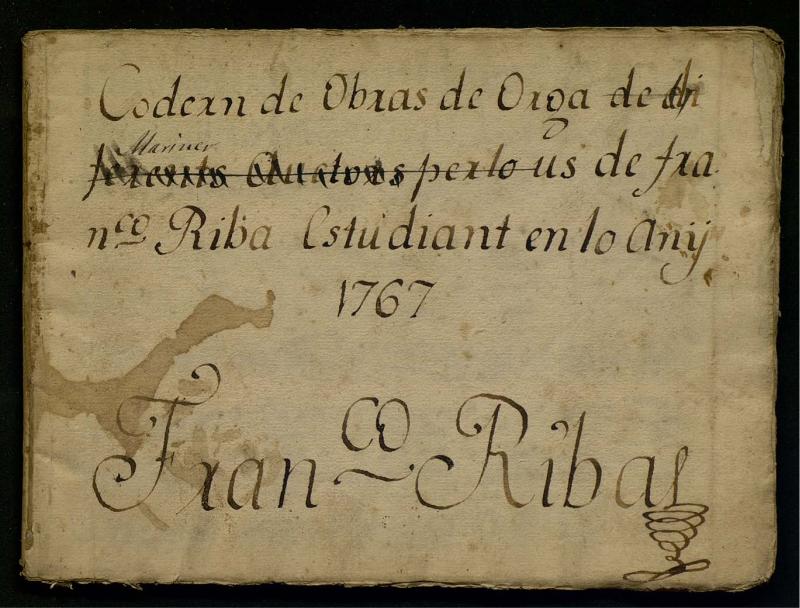 Codern de Obras de Orga de di
Mariner
ferents Auctors per lo us de fra
nco Riba Estudiant en lo Any
1767
Franco. Riba